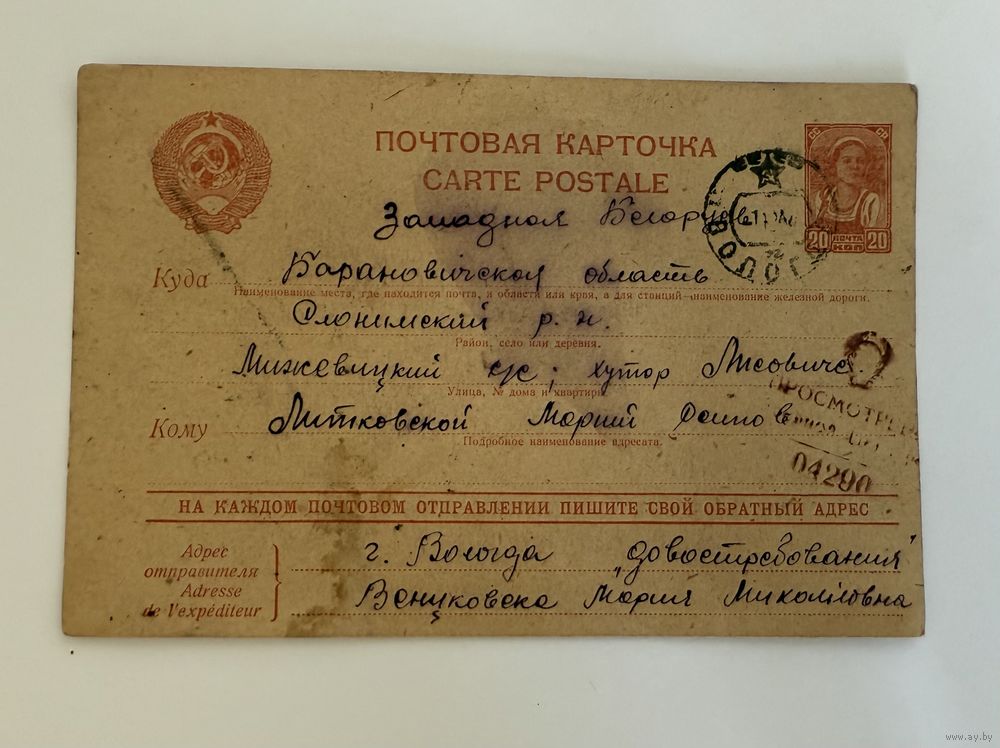 ПОЧТОВАЯ КАРТОЧКА
CARTE POSTALE
СС СР
20 ПОЧТА КОП 20
Западная Белорус
Куда Барановичская область
Наименование места, где находится почта, и области или края, а для станций—наименование железной дороги.
Слонимский р. н.
Район, село или деревня.
Мижевицкий с/с; хутор Лисовичс
Улица, № дома и квартиры
Кому Литковской Марии
Подробное наименование адресата.
ПРОСМОТРЕНО
04290
НА КАЖДОМ ПОЧТОВОМ ОТПРАВЛЕНИИ ПИШИТЕ СВОЙ ОБРАТНЫЙ АДРЕС
Адрес отправителя
Adresse de l'expéditeur
г. Вологда "довостребования"
Венцковска Мария Миколаовна
www.ay.by